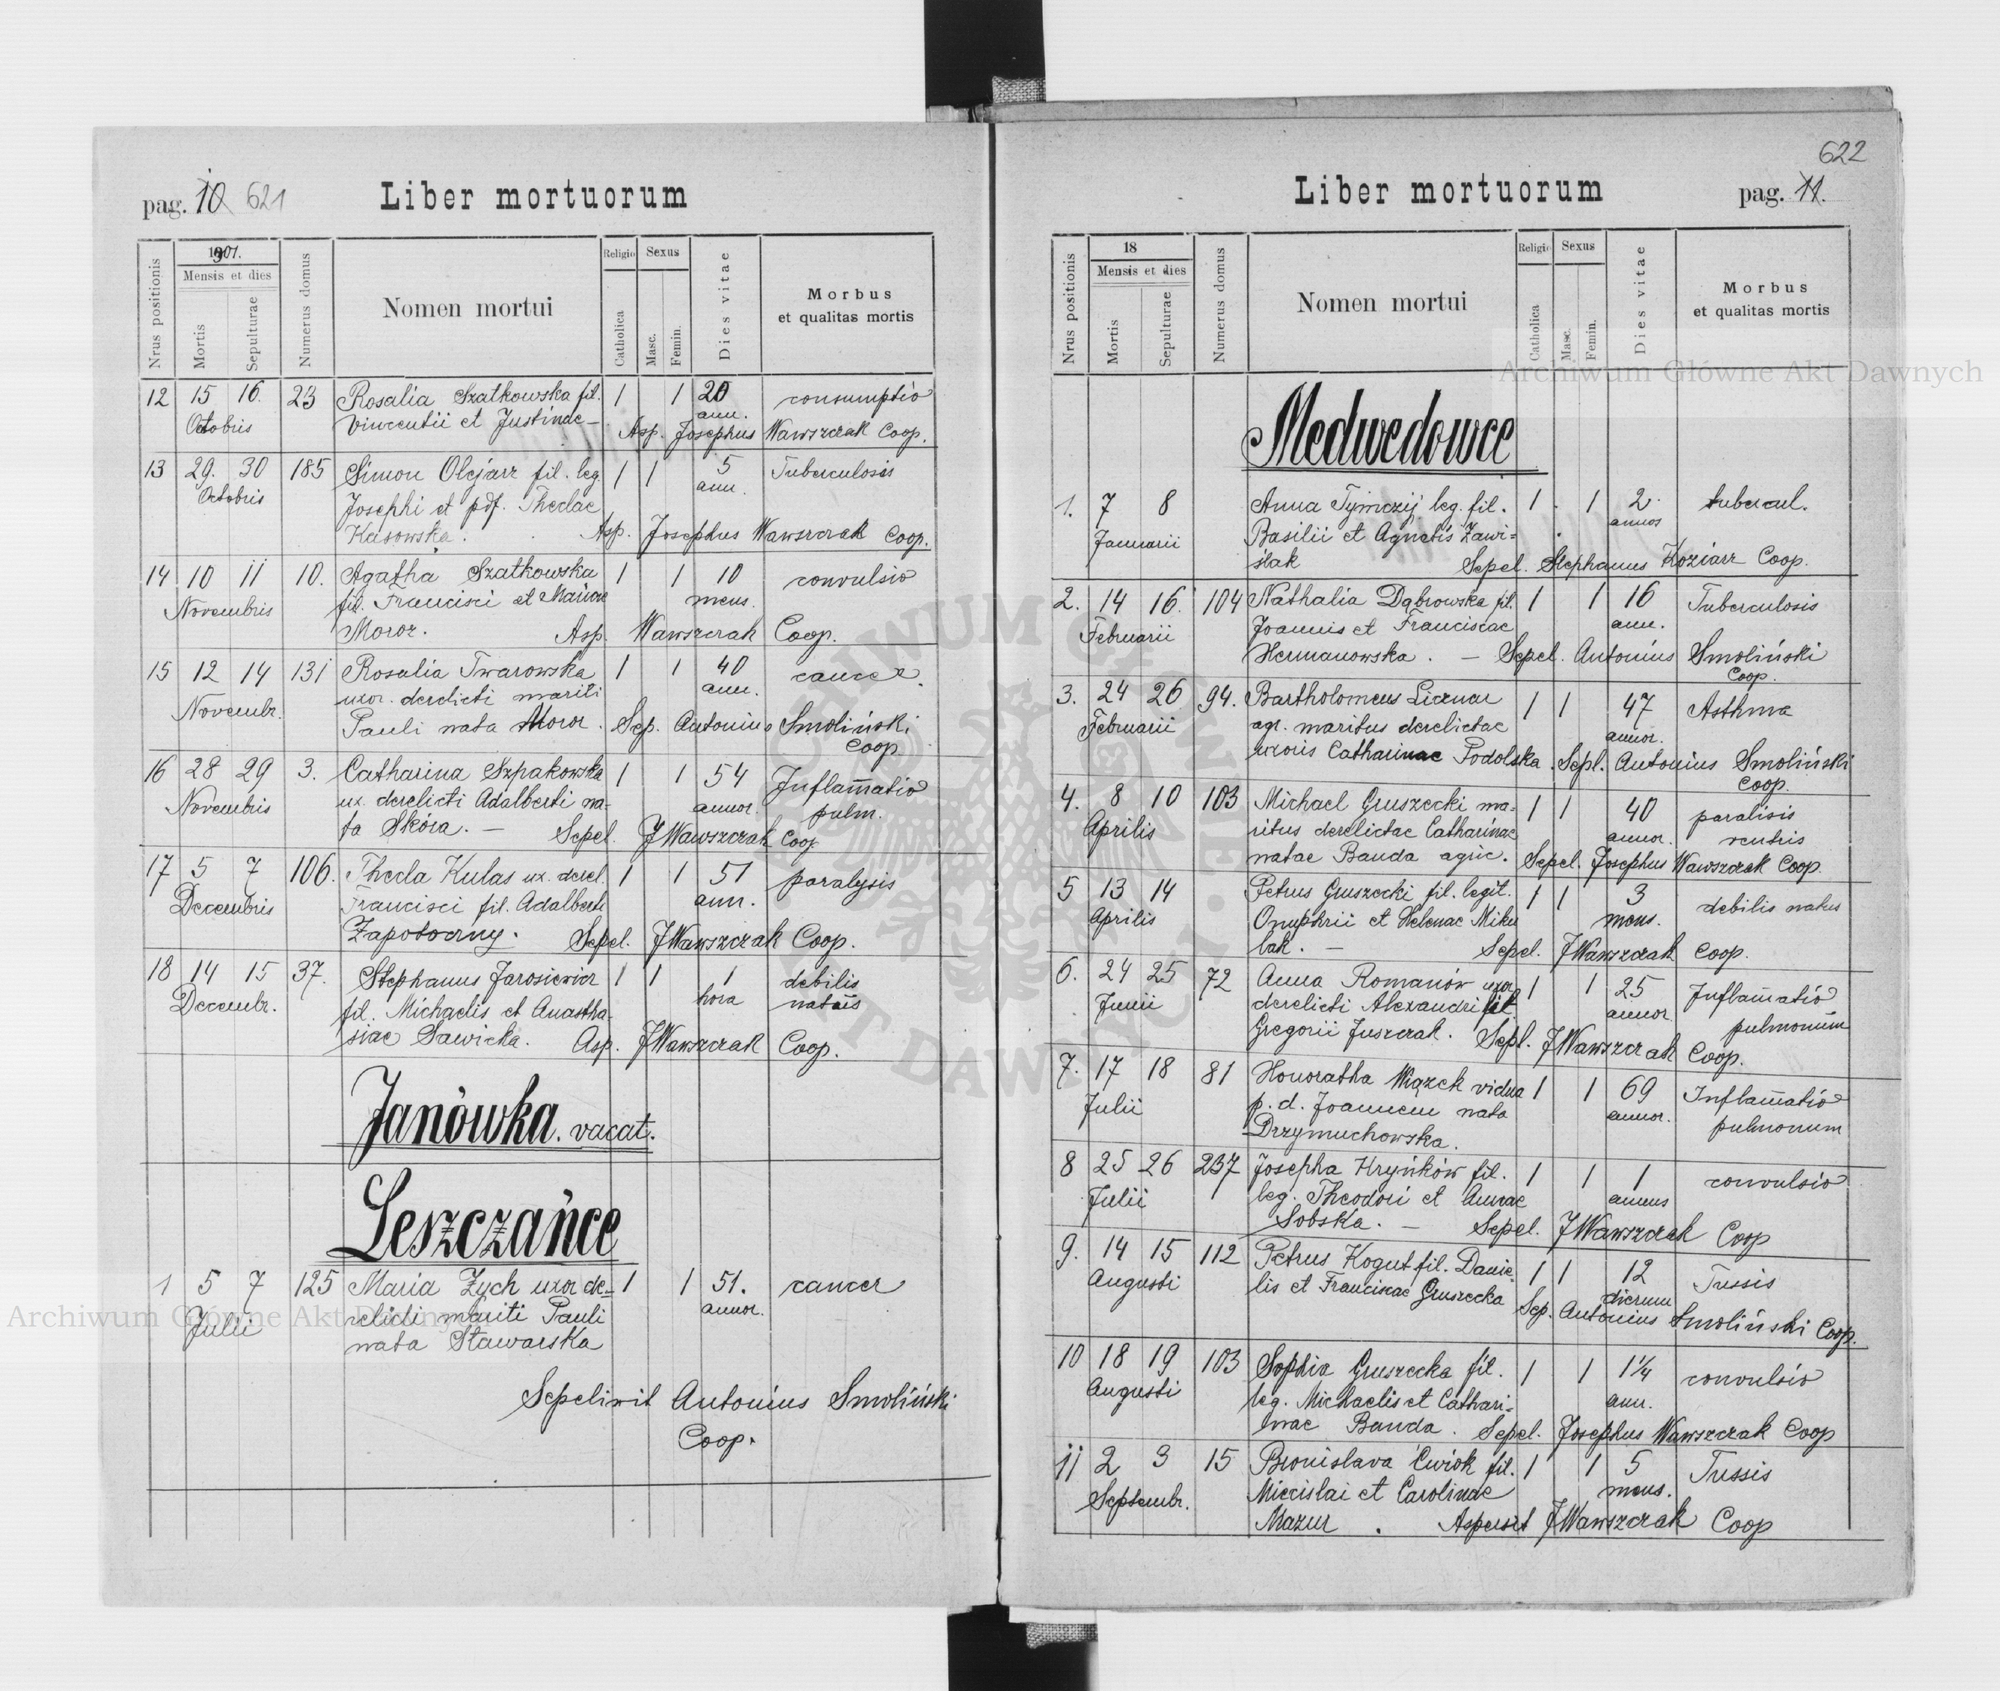 pag. 10 621
Liber mortuorum
Nrus positionis
1901.
Mensis et dies
Mortis
Sepulturae
Numerus domus
Nomen mortui
Religio
Catholica
Sexus
Masc.
Femin.
Dies vitae
Morbus
et qualitas mortis
12 15 16. 23 Rosalia Szatkowska fil. 1 1 20 consumptio
Octobris Vincentii et Justinae — ann.
Asp. Josephus Wawszczak Coop.
13 29. 30 185 Simon Olejarz fil. leg. 1 1 5 Tuberculosis
Octobris Josephi et pdf. Theclae ann.
Kasowska. Asp. Josephus Wawszczak Coop.
14 10 11 10. Agatha Szatkowska 1 1 10 convulsio
Novembris fil. Francisci et Mariae mens.
Moroz. Asp. Wawszczak Coop.
15 12 14 131 Rosalia Twarowska 1 1 40 cancer.
Novembr. uxor. derelicti mariti ann.
Pauli nata Moroz. Sep. Antonius Smoliński
Coop
16 28 29 3. Catharina Szpakowska 1 1 54 Inflamatio
Novembris ux. derelicti Adalberti na- annor. pulm.
ta Skóra. — Sepel. JWawszczak Coop
17 5 7 106. Thecla Kulas ux. derel. 1 1 51 paralysis
Decembris Francisci fil. Adalberti ann.
Zapotoczny. Sepel. JWawszczak Coop.
18 14 15 37. Stephanus Jarosiewicz 1 1 1 debilis
Decembr. fil. Michaelis et Anastha- hora natus
siae Sawicka. Asp. JWawszczak Coop.
Janówka. vacat.
Leszczańce
1 5 7 125 Maria Zych uxor de- 1 1 51. cancer
Julii relicti mariti Pauli annor.
nata Stawarska
Sepelivit Antonius Smoliński
Coop.
622
Liber mortuorum
pag. 11.
Nrus positionis
18
Mensis et dies
Mortis
Sepulturae
Numerus domus
Nomen mortui
Religio
Catholica
Sexus
Masc.
Femin.
Dies vitae
Morbus
et qualitas mortis
Medwedowce
1. 7 8 Anna Tymczij leg. fil. 1 1 2 tubercul.
Januarii Basilii et Agnetis Zawi= annos
ślak Sepel. Stephanus Koziarz Coop.
2. 14 16. 104 Nathalia Dąbrowska fil. 1 1 16 Tuberculosis
Februarii Joannis et Franciscae ann.
Hermanowska. — Sepel. Antonius Smoliński
Coop.
3. 24 26 94. Bartholomeus Licznar 1 1 47 Asthma
Februarii agr. maritus derelictae annor.
uxoris Catharinae Podolska. Sepl. Antonius Smoliński
Coop.
4. 8 10 103 Michael Gruszecki ma- 1 1 40 paralisis
Aprilis ritus derelictae Catharinae annor. ventris
natae Banda agric. Sepel. Josephus Wawszczak Coop.
5 13 14 Petrus Gruszecki fil. legit. 1 1 3 debilis natus
Aprilis Onuphrii et Helenae Miku mens.
lak. — Sepel. JWawszczak Coop.
6. 24 25 72 Anna Romanów uxo. 1 1 25 Inflamatio
Junii derelicti Alexandri fil. annor pulmonum
Gregorii Juszczak. Sepl. JWawszczak Coop.
7. 17 18 81 Honoratha Wiązek vidua 1 1 69 Inflamatio
Julii p. d. Joannem nata annor. pulmonum
Drzymuchowska.
8 25 26 237 Josepha Hryńków fil. 1 1 1 convulsio
Julii leg. Theodori et Annae annus
Sobska. — Sepel. JWawszczak Coop
9. 14 15 112 Petrus Kogut fil. Danie- 1 1 12 Tussis
Augusti lis et Franciscae Gruszecka dierum
Sep. Antonius Smoliński Coop.
10 18 19 103 Sophia Gruszecka fil. 1 1 1¼ convulsio
Augusti leg. Michaelis et Cathari- ann.
nae Banda. Sepel. Josephus Wawszczak Coop
11 2 3 15 Bronislava Cwiok fil. 1 1 5 Tussis
Septembr. Miecislai et Carolinae mens.
Mazur. Aspersit JWawszczak Coop
Archiwum Główne Akt Dawnych
Archiwum Główne Akt Dawnych